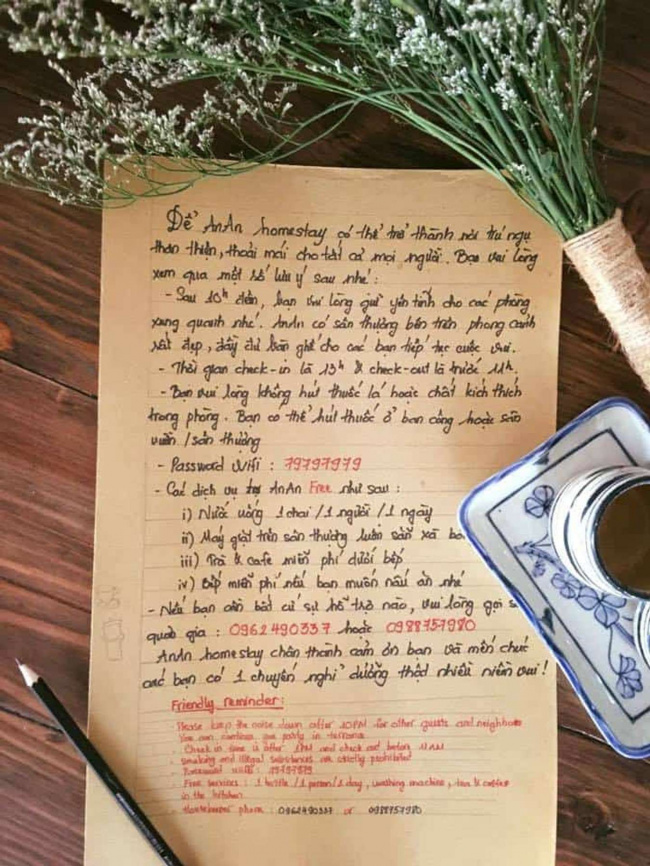 Để AnAn homestay có thể trở thành nơi trú ngụ
thân thiện, thoải mái cho tất cả mọi người. Bạn vui lòng
xem qua một số lưu ý sau nhé:
- Sau 10h đêm, bạn vui lòng giữ yên tĩnh cho các phòng
xung quanh nhé. AnAn có sân thượng bên trên phong cảnh
rất đẹp, đầy đủ bàn ghế cho các bạn tiếp tục cuộc vui.
- Thời gian check-in là 13h & check-out là trước 11h.
- Bạn vui lòng không hút thuốc lá hoặc chất kích thích
trong phòng. Bạn có thể hút thuốc ở ban công hoặc sân
vườn / sân thượng
- Password Wifi : 79797979
- Các dịch vụ AnAn Free như sau :
i) Nước uống 1 chai / 1 người / 1 ngày
ii) Máy giặt trên sân thượng luôn sẵn xã bo
iii) Trà & cafe miễn phí dưới bếp
iv) Bếp miễn phí nếu bạn muốn nấu ăn nhé
- Nếu bạn cần bất cứ sự hỗ trợ nào, vui lòng gọi s
quản gia : 0962490337 hoặc 0988757980
AnAn homestay chân thành cảm ơn bạn và mến chúc
các bạn có 1 chuyến nghỉ dưỡng thật nhiều niềm vui !
Friendly reminder:
- Please keep the noise down after 10PM for other guests and neighbors
You can continue your party in terrace
- Check in time is after 1PM and check out before 11AM
- Smoking and illegal substances are strictly prohibited
- Password Wifi : 79797979
- Free services : 1 bottle / 1 person / 1 day, washing machine, tea & coffee
in the kitchen
- Housekeeper phone : 0962490337 or 0988757980